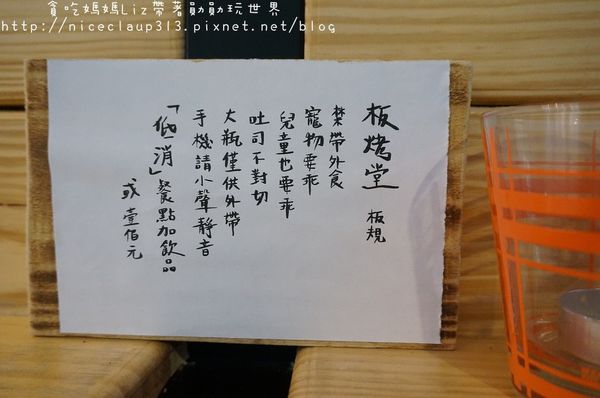 貪吃媽媽Liz帶著勛勛玩世界
http://niceclaup313.pixnet.net/blog
板烤堂 板規
禁帶外食
寵物要乖
兒童也要乖
吐司不對切
大瓶僅供外帶
手機請小聲靜音
「低消」餐點加飲品
或壹佰元